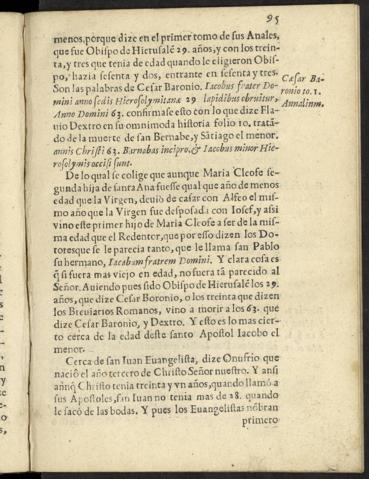 95
menos, porque dize en el primer tomo de sus Anales,
que fue Obispo de Hierusalē 29. años, y con los trein-
ta, y tres que tenia de edad quando le eligieron Obis-
po, hazia sesenta y dos, entrante en sesenta y tres.
Son las palabras de Cesar Baronio. Iacobus frater Do-
mini anno sedis Hierosolymitanæ 29 lapidibus obruitur,
Anno Domini 63. confirmase esto con lo que dize Fla-
uio Dextro en su omnimoda historia folio 10. tratā-
do de la muerte de san Bernabe, y Sātiago el menor.
annis Christi 63. Barnabas incipro, & Iacobus minor Hie-
rosolymis occisi sunt.
Cæsar Ba-
ronio to. 1.
Annalium.
De lo qual se colige que aunque Maria Cleofe se-
gunda hija de santa Ana fuesse qual que año de menos
edad que la Virgen, deuio de casar con Alfeo el mis-
mo año que la Virgen fue desposada con Iosef, y assi
vino este primer hijo de Maria Cleofe a ser de la mis-
ma edad que el Redentor, que por esso dizen los Do-
tores que se le parecia tanto, que le llama san Pablo
su hermano, Iacobum fratrem Domini. Y clara cosa es
q̄ si fuera mas viejo en edad, no fuera tā parecido al
Señor. Auiendo pues sido Obispo de Hierusalē los 29.
años, que dize Cesar Boronio, o los treinta que dizen
los Breuiarios Romanos, vino a morir a los 63. que
dize Cesar Baronio, y Dextro. Y esto es lo mas cier-
to cerca de la edad deste santo Apostol Iacobo el
menor.
Cerca de san Iuan Euangelista, dize Onufrio que
nacio el año tercero de Christo Señor nuestro. Y ansi
annq̄ Christo tenia treinta y vn años, quando llamó a
sus Apostoles, san Iuan no tenia mas de 28. quando
le sacó de las bodas. Y pues los Euangelistas nōbran
primero